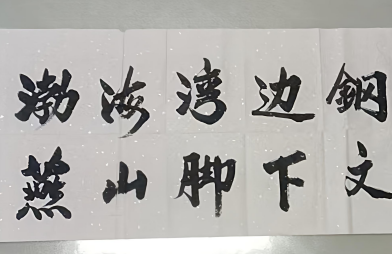 渤海湾边鋼
燕山脚下文